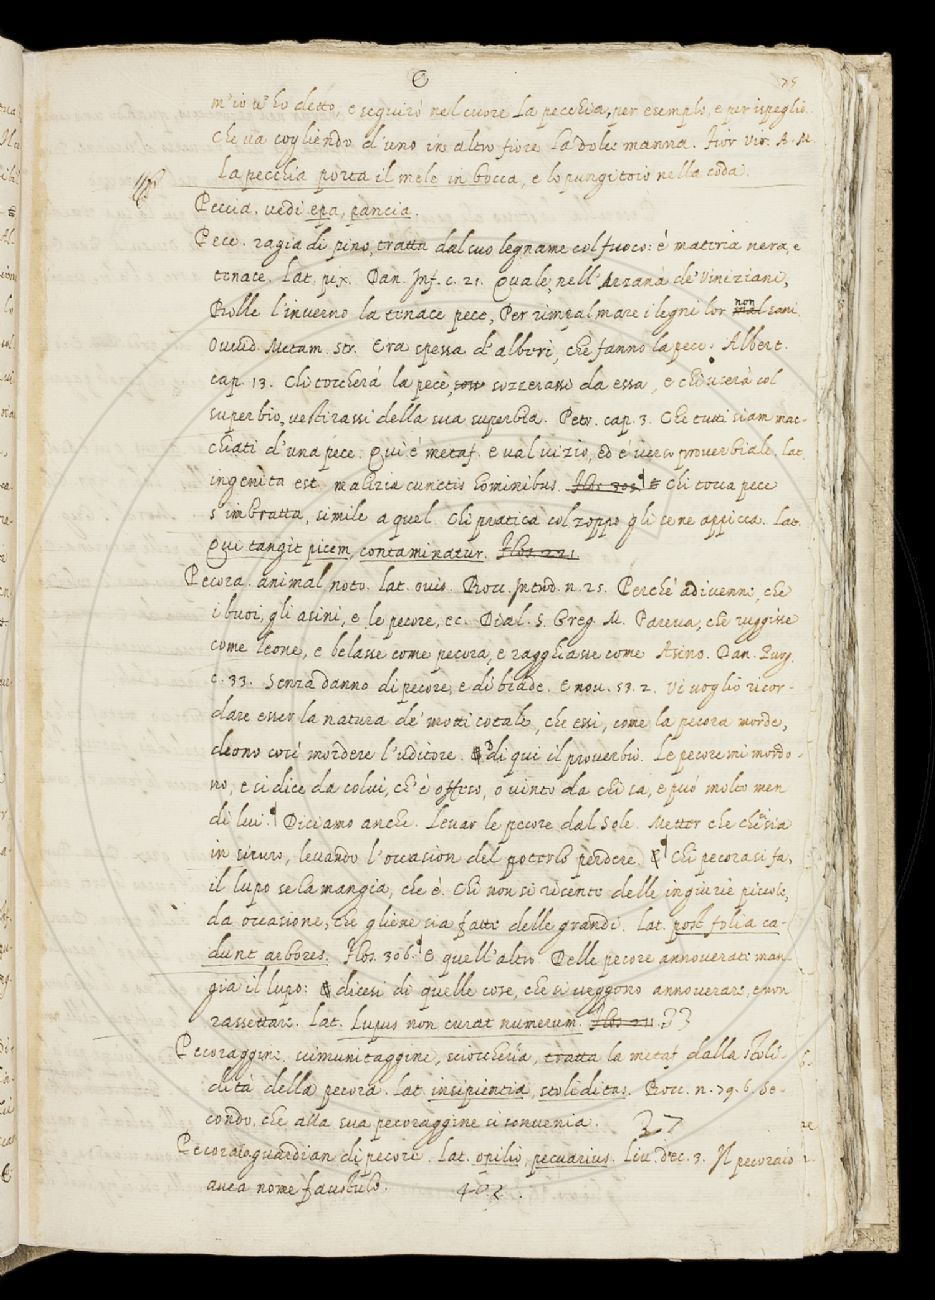 C
m'io v'ho detto, e seguirò nel cuore la pecchia, per esemplo, e per ispeglio.
che va cogliendo d'uno in altro fiore la dolce manna. Fior vir. A. M.
La pecchia porta il mele in bocca, e lo pungitoio nella coda.
Peccia. vedi epa, pancia.
Pece. ragia di pino, tratta dal suo legname col fuoco: è materia nera, e
tenace. Lat. pix. Dan. Inf. c. 21. Quale, nell' Arzanà de' Viniziani,
Bolle l'inverno la tenace pece, Per rimpalmare i legni lor non sani.
Ovvid. Metam. Str. Era spessa d'alberi, che fanno la pece. Albert.
cap. 13. Chi toccherà la pece, sozzerassi da essa, e chi userà col
superbio, vestirassi della sua superbia. Petr. cap. 3. Che tutti siam mac-
chiati d'una pece. Qui è metaf. e val vizio, ed è verso proverbiale. lat.
ingenita est malizia cunctis hominibus. Flos 305 E Chi tocca pece
s'imbratta, simile a quel. Chi pratica col zoppo gli se ne appicca. Lat.
Qui tangit picem, contaminatur. Flos 221
Pecora. animal noto. lat. ovis. Bocc. Introd. n. 25. Perchè adivenne, che
i buoi, gli asini, e le pecore, ec. Dial. S. Greg. M. Pareva, che ruggisse
come leone, e belasse come pecora, e ragghiasse come Asino. Dan. Purg.
c. 33. Senza danno di pecore, e di biade. E nov. 53. 2. Vi voglio ricor-
dare esser la natura de' motti cotale, che essi, come la pecora morde,
deono così mordere l'uditore. di qui il proverbio. Le pecore mi mordo-
no, e si dice da colui, ch'è offeso, o vinto da chi sa, e può molto men
di lui. Diciamo anche. Levar le pecore dal Sole. Metter che che sia
in sicuro, levando l'occasion del poterlo perdere. E chi pecora si fa,
il lupo se la mangia, che è. Chi non si risente delle ingiurie piccole,
da occasione, che gliene sia fatte delle grandi. Lat. post folia ca-
dunt arbores. Flos. 306. E quell'altro Delle pecore annoverate man-
gia il lupo: dicesi di quelle cose, che si veggono annoverare, e non
rassettare. Lat. Lupus non curat numerum. Flos 211. 33
Pecoraggine. scimunitaggine, sciocchezza, tratta la metaf dalla stoli-
dità della pecora. lat. insipientia, stoliditas. Bocc. n. 79. 6. Se-
condo, che alla sua pecoraggine si convenia. 27
Pecoraio guardian di pecore. Lat. opilio, pecuarius. Liv. dec. 3. Il pecoraio
avea nome faustulo.